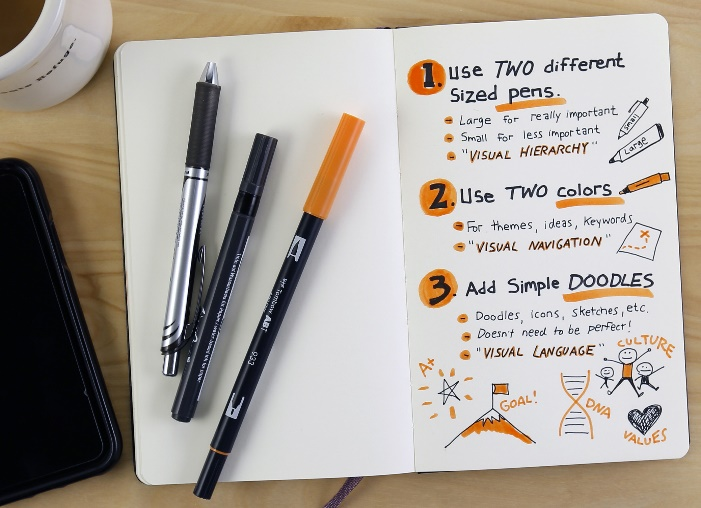 Refuge.
Tombow ABT
933
1. Use TWO different
Sized pens.
Large for really important
Small for less important
"VISUAL HIERARCHY"
Small
Large
2. Use TWO colors
For themes, ideas, keywords
"VISUAL NAVIGATION"
x
3. Add Simple DOODLES
Doodles, icons, sketches, etc.
Doesn't need to be perfect!
"VISUAL LANGUAGE"
A+
GOAL!
DNA
CULTURE
VALUES